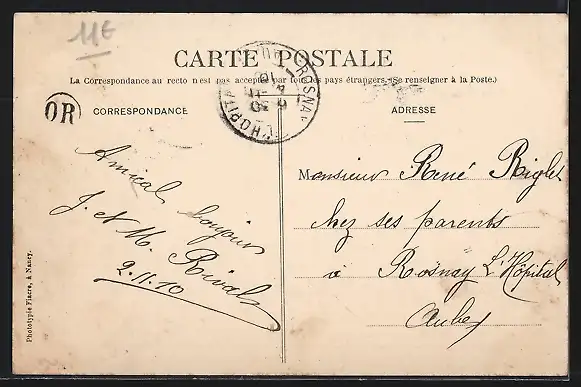 11€
CARTE POSTALE
La Correspondance au recto n'est pas acceptée par tous les pays étrangers. (Se renseigner à la Poste.)
OR
CORRESPONDANCE
Amical bonjour
J. et M. Rivals
2.11.10
ADRESSE
Monsieur René Riglet
chez ses parents
à Rosnay L'Hôpital
Aube
ROSNAY L'HOPITAL
Phototypie Fiacre, à Nancy.